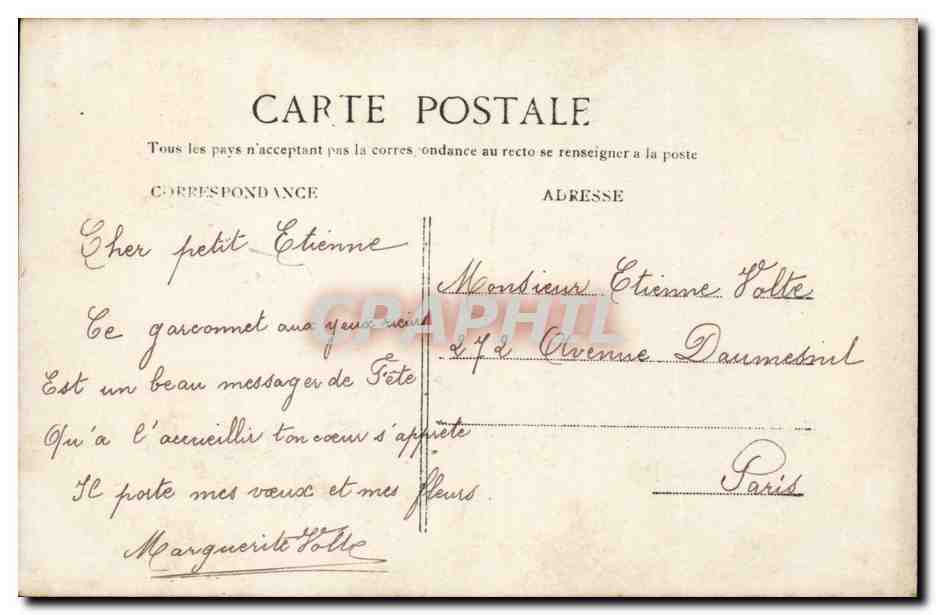 CARTE POSTALE
Tous les pays n'acceptant pas la correspondance au recto se renseigner a la poste
CORRESPONDANCE
ADRESSE
Cher petit Etienne
Ce garconnet aux yeux rieurs
Est un beau messager de Fête
Qu'a l'accueillir ton cœur s'apprete
Il porte mes vœux et mes fleurs.
Marguerite Volte
Monsieur Etienne Volte
272 Avenue Daumesnil
Paris
GRAPHIL